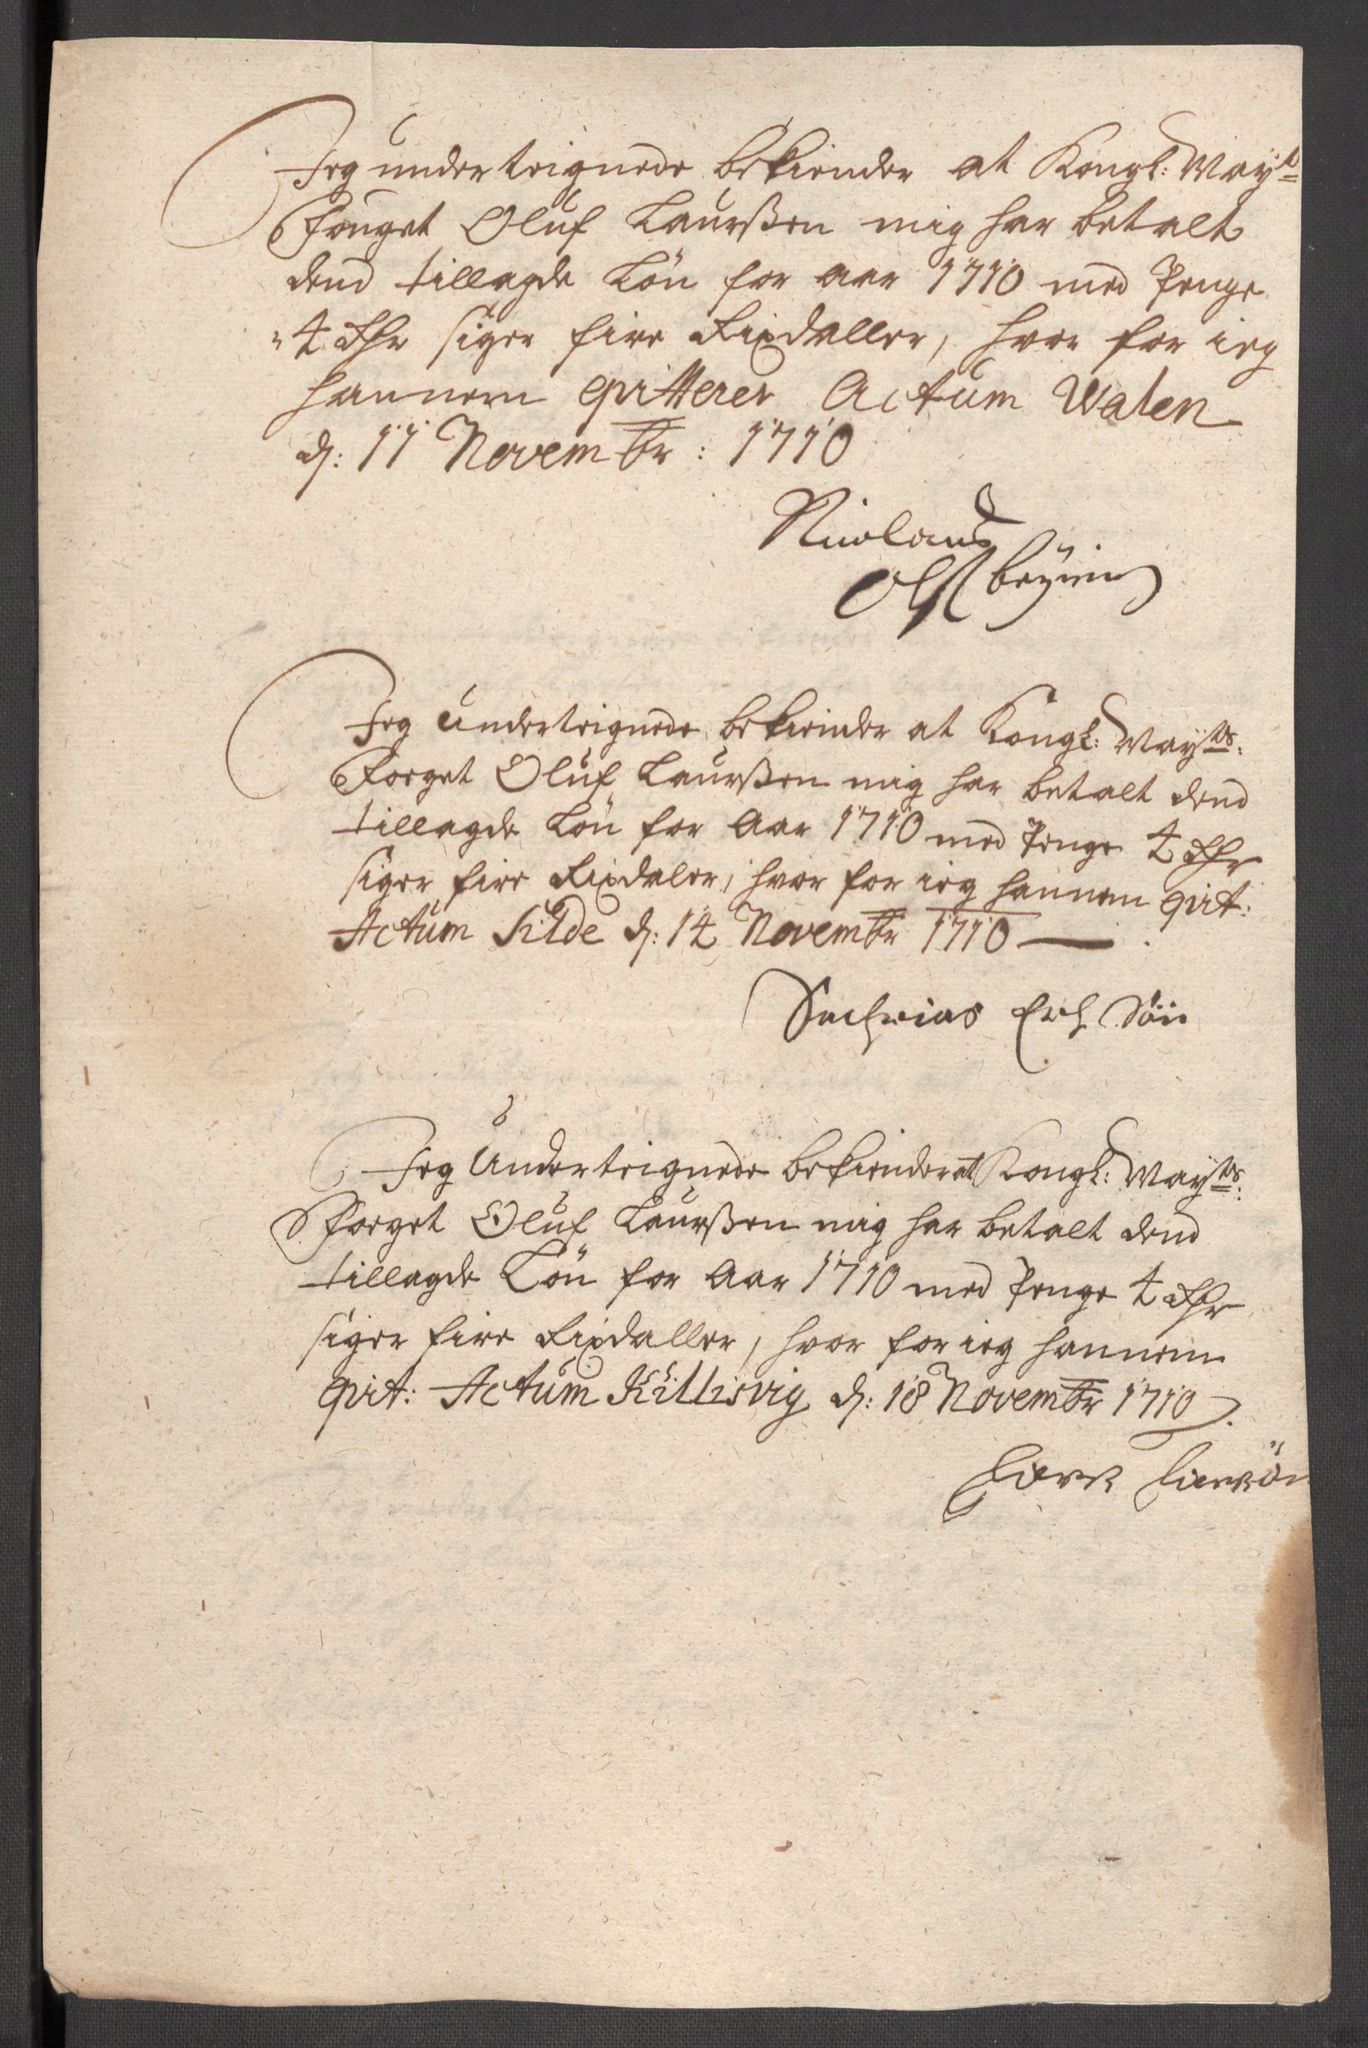 Jeg underteignede bekiender at Kongl: May:ts
Fouget Oluf Laurßen mig har betalt
dend tillagde Lön for aar 1710 med Penge
4 Rdr siger fire Rixdaller, hvor for ieg
hannem qvitterer Actum Walen
d: 11 Novembr: 1710
Nicolaus
Jeg Underteignede bekiender at Kongl: May:ts
Foeget Oluf Laurßen mig har betalt dend
tillagde Lön for Aar 1710 med Penge 4 Rdr
siger fire Rixdaler, hvor for ieg hannem qvit:
Actum Silde d: 14 Novembr 1710
Sachrias Erh Sön
Jeg Underteignede bekiender at Kongl: May:ts
Foeget Oluf Laurßen mig har betalt dend
tillagde Lön for Aar 1710 med Penge 4 Rdr
siger fire Rixdaller, hvor for ieg hannem
qvit: Actum Killisvig d: 18 Novembr 1710